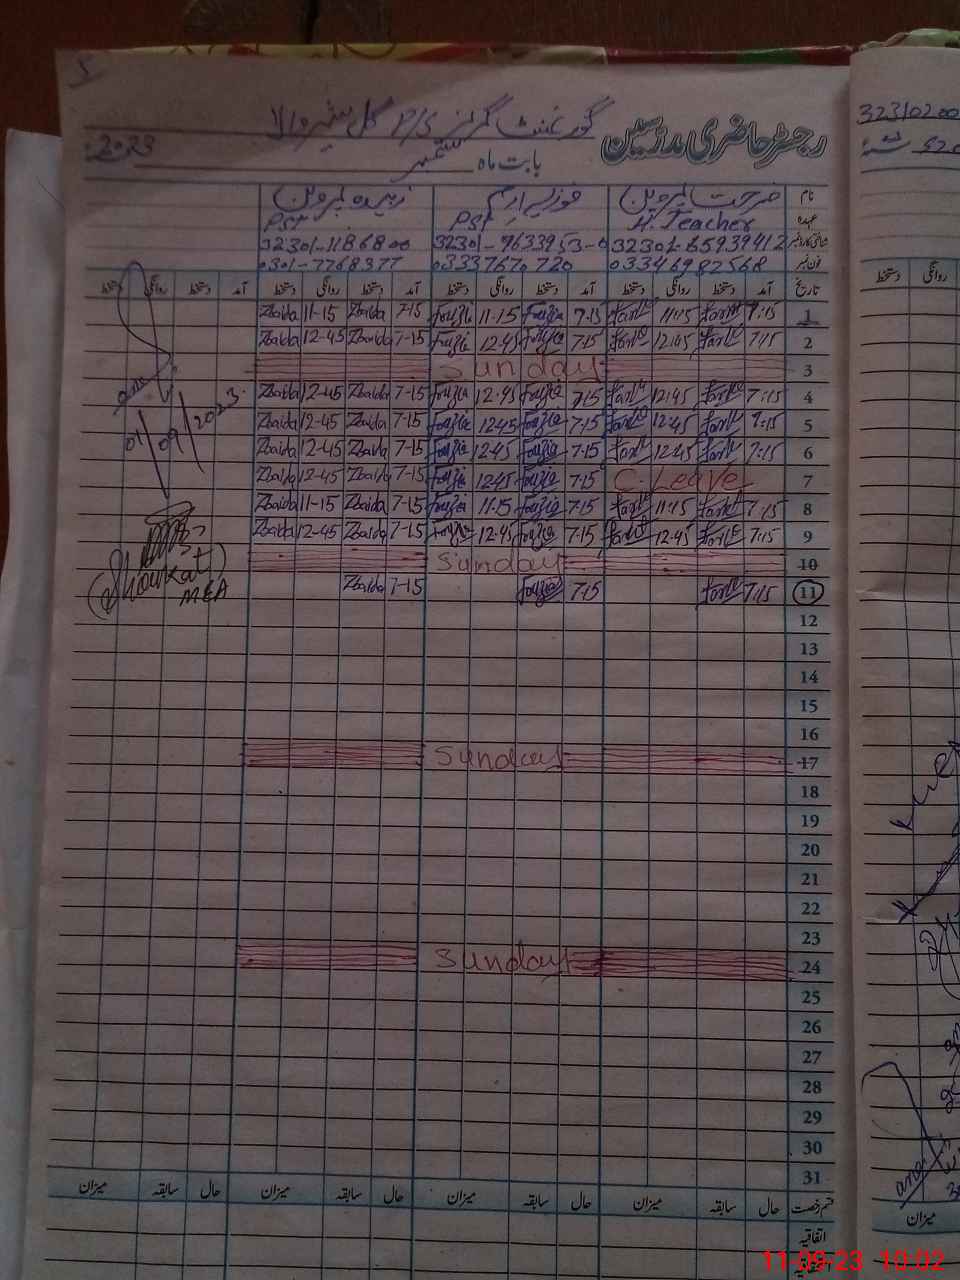 رجسٹر حاضری مدرسین گورنمنٹ گرلز P/S گل شیر والا
بابت ماہ ستمبر 2023ء
نام فوزیہ ارم زبیدہ پروین
عہدہ H. Teacher PST PST
شناختی کارڈ نمبر 32301-9633953-0 32301-1186800
فون نمبر 03346982568 03337670720 0301-7768377
تاریخ آمد دستخط روانگی دستخط آمد دستخط روانگی دستخط آمد دستخط روانگی دستخط آمد دستخط روانگی دستخط
1 7:15 11:15 7-15 Fouzia 11-15 Fouzia 7-15 Zbaida 11-15 Zbaida
2 7:15 12:45 7-15 Fouzia 12-45 Fouzia 7-15 Zbaida 12-45 Zbaida
3 Sunday
4 7:15 12:45 7-15 Fouzia 12-45 Fouzia 7-15 Zbaida 12-45 Zbaida
5 7:15 12:45 7-15 Fouzia 12-45 Fouzia 7-15 Zbaida 12-45 Zbaida
6 7:15 12:45 7-15 Fouzia 12-45 Fouzia 7-15 Zbaida 12-45 Zbaida
7 C. Leave 7-15 Fouzia 12-45 Fouzia 7-15 Zbaida 12-45 Zbaida
8 7:15 11:15 7-15 Fouzia 11-15 Fouzia 7-15 Zbaida 11-15 Zbaida
9 7:15 12:45 7-15 Fouzia 12-45 Fouzia 7-15 Zbaida 12-45 Zbaida
10 Sunday
11 7:15 7-15 Fouzia 7-15 Zbaida
12
13
14
15
16
17 Sunday
18
19
20
21
22
23
24 Sunday
25
26
27
28
29
30
31
قسم رخصت حال سابقہ میزان حال سابقہ میزان حال سابقہ میزان حال سابقہ میزان
اتفاقیہ
01/09/2023
(Shoukat)
MEA
میزان
11-09-23 10:02